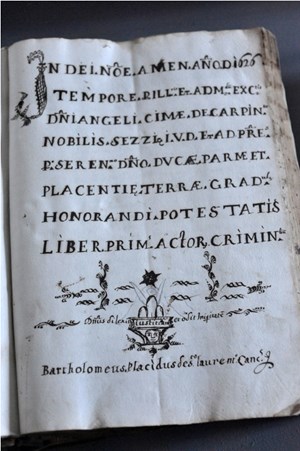 IN DEI. NÕE. AMEN. AÑO. DI 1626
TEMPORE. P. ILL. ET. ADM. EXC.
DÑI ANGELI. CIMÆ. DE CARPIN.
NOBILIS. SEZZI. I. V. D. ET AD PRÆ.
P. SEREN. DÑO. DVCÆ. PARMÆ ET.
PLACENTIĘ. TERRÆ. GRAD
HONORANDI. POTESTATIS
LIBER. PRIM. ACTOR. CRIMIN
IUSTITIA
Bartholomeus. Placidus de S. Laure. Canc.